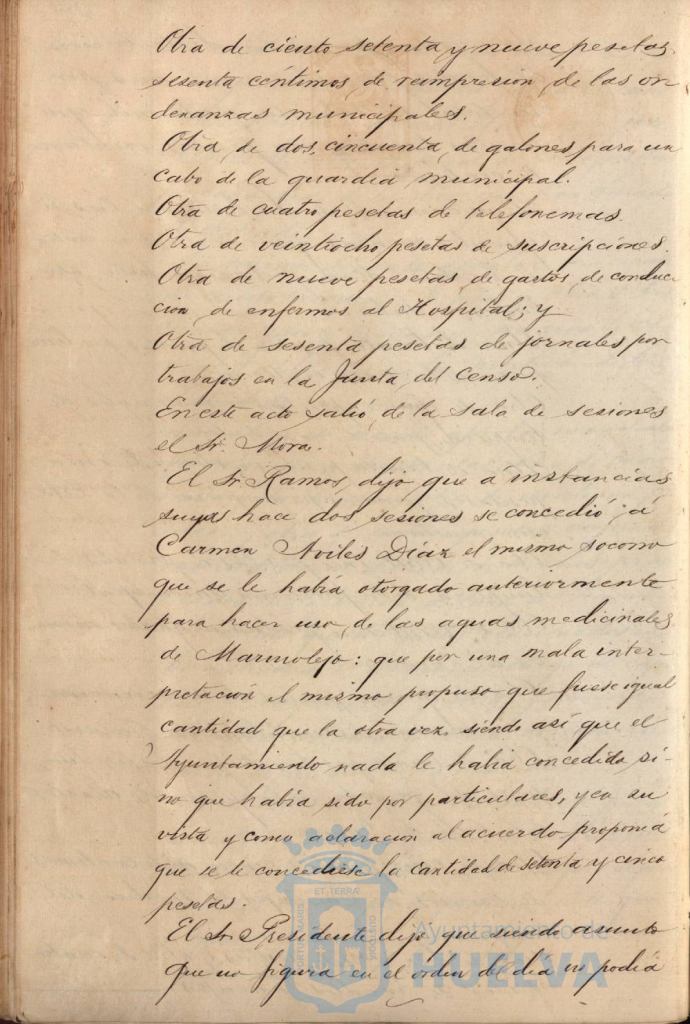 Otra de ciento setenta y nueve pesetas,
sesenta céntimos, de reimpresion, de las or
denanzas municipales.
Otra de dos, cincuenta, de galones para un
cabo de la guardia municipal.
Otra de cuatro pesetas de telefonemas.
Otra de veintiocho pesetas de suscripciones.
Otra de nueve pesetas de gastos, de conduc
cion, de enfermos al Hospital; y
Otra de sesenta pesetas de jornales por
trabajos en la Junta del Censo.
En este acto salió, de la sala de sesiones
el Sr. Mora.
El Sr. Ramos, dijo que á instancias
suyas hace dos sesiones se concedió á
Carmen Aviles Díaz el mismo socorro
que se le había otorgado anteriormente
para hacer uso, de las aguas medicinales
de Marmolejo: que por una mala inter-
pretación el mismo propuso que fuese igual
cantidad que la otra vez, siendo así que el
Ayuntamiento nada le había concedido si-
no que había sido por particulares, y en su
vista y como aclaración al acuerdo proponia
que se le concediese la cantidad de setenta y cinco
pesetas.
El Sr. Presidente dijo que siendo asunto
que no figura en el orden del dia no podia
ET TERRÆ
Ayuntamiento de
HUELVA